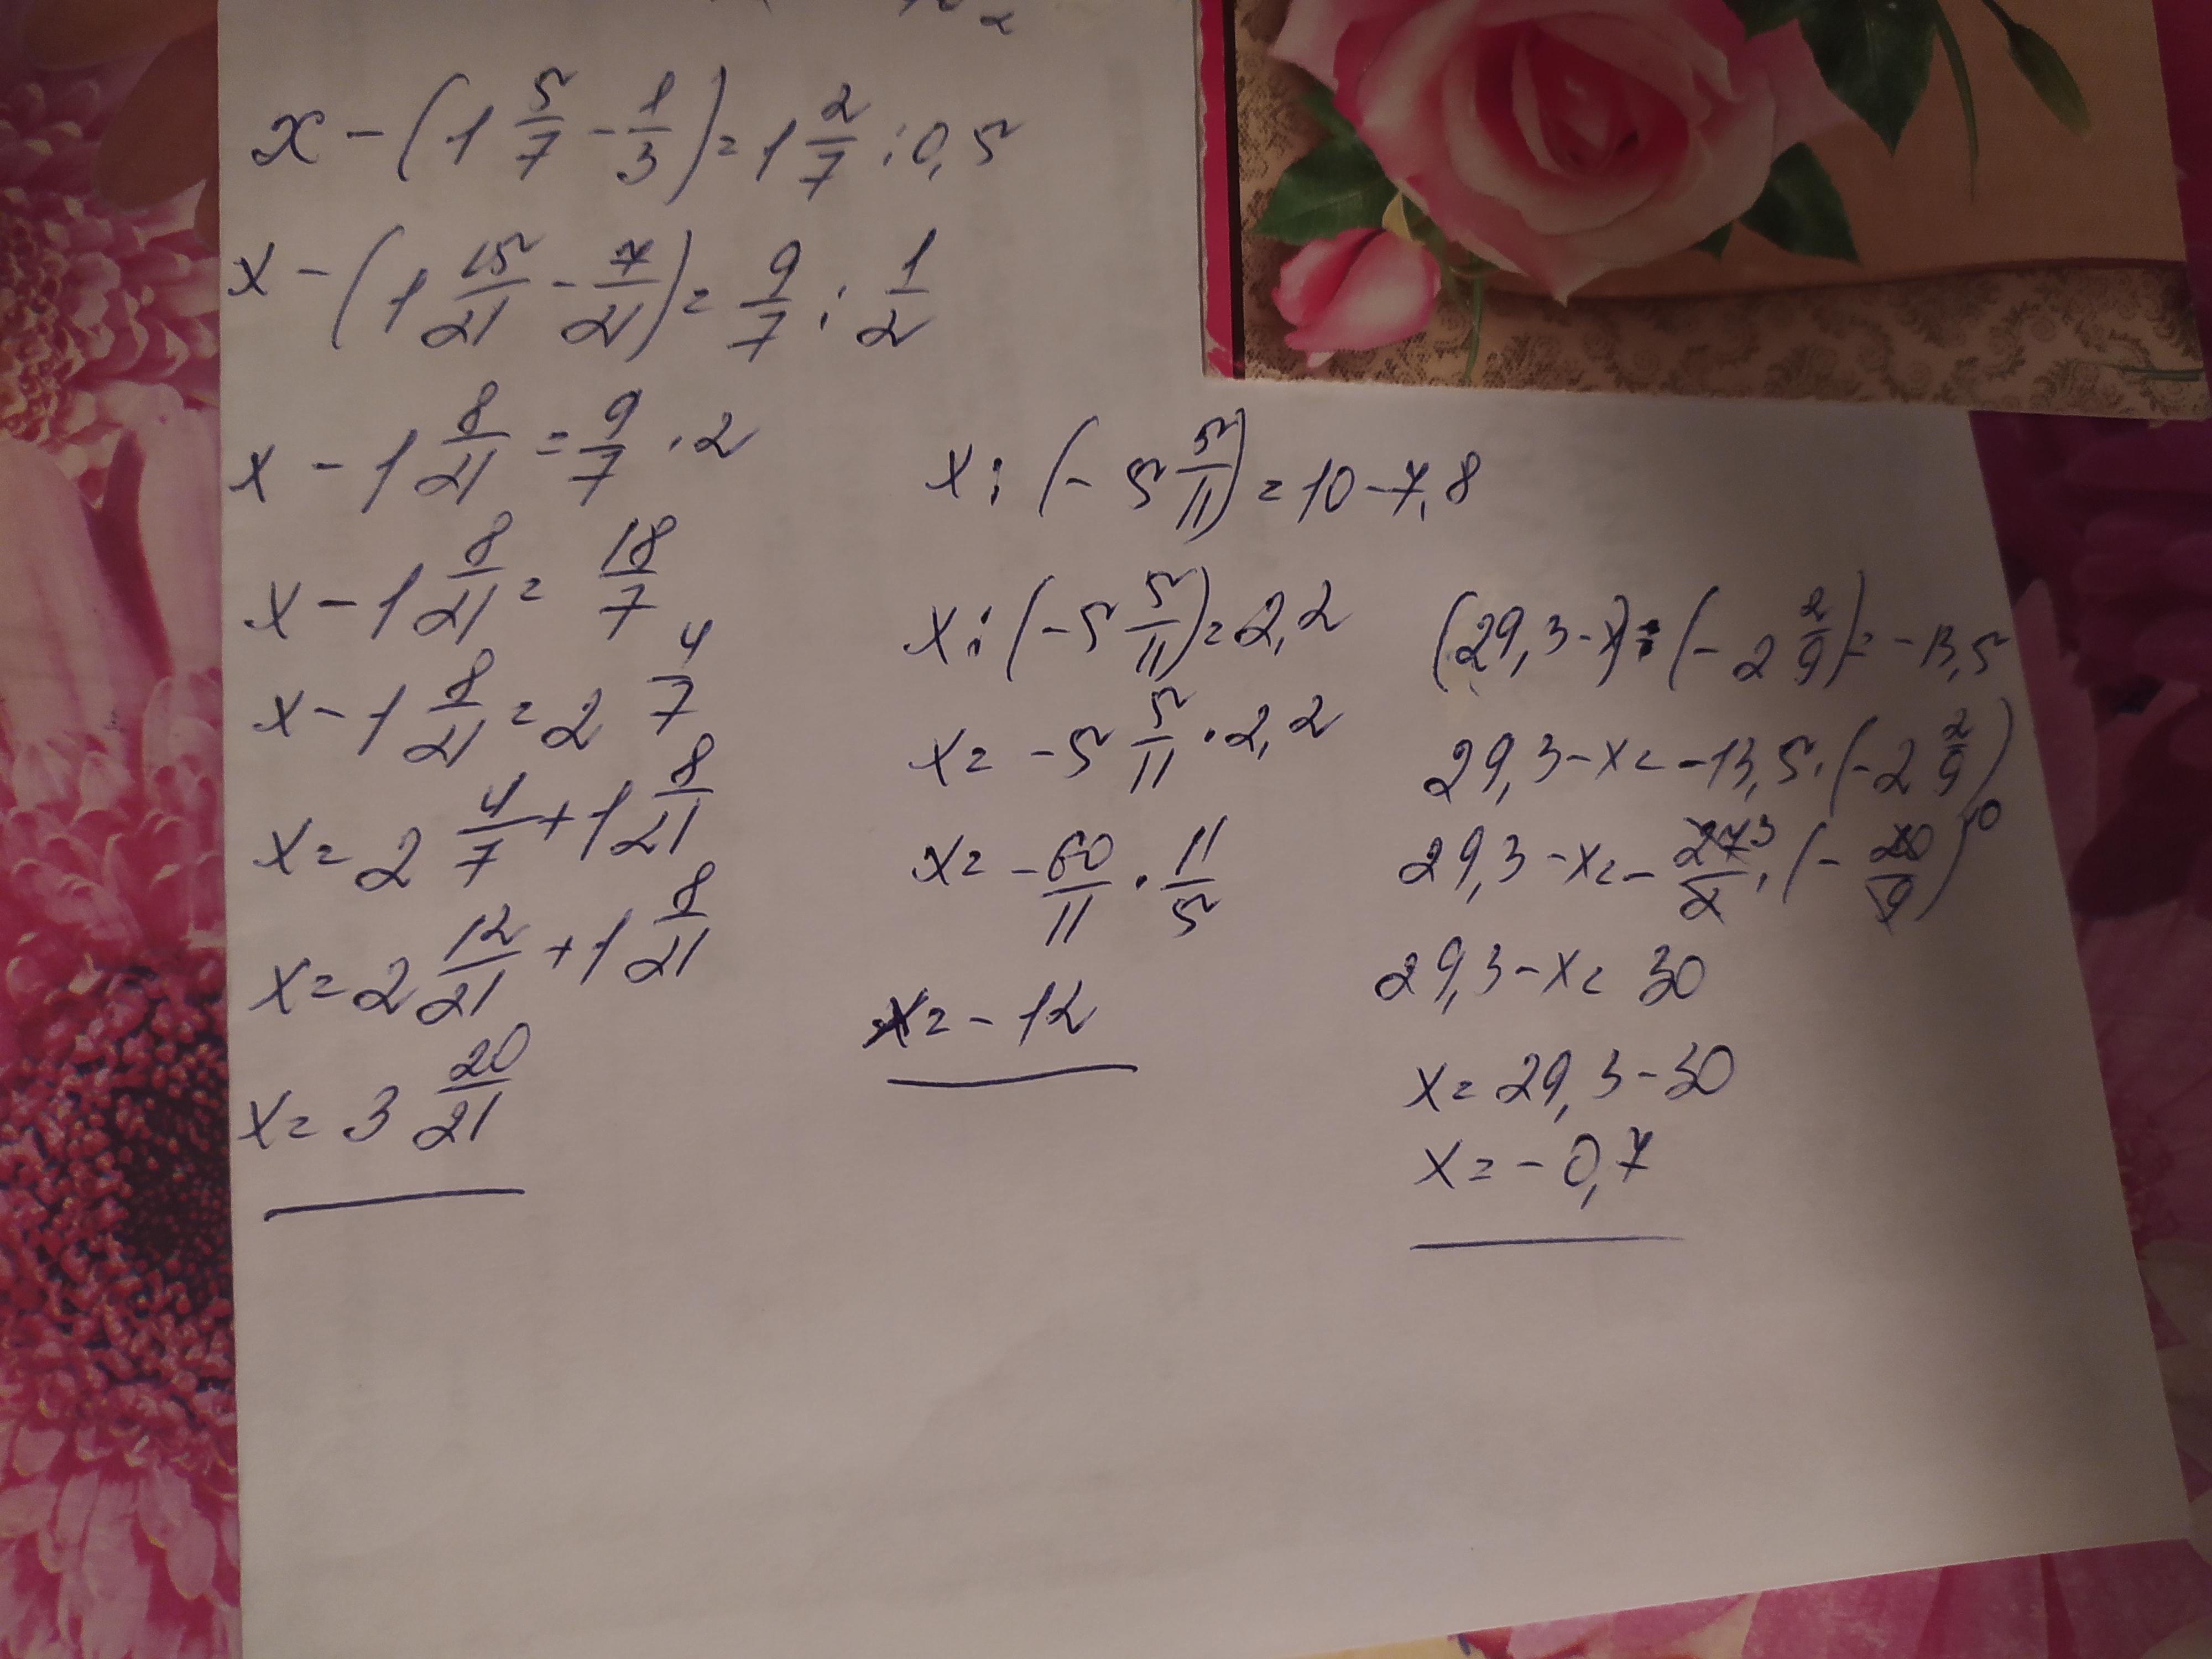 x - (1 5/7 - 1/3) = 1 2/7 : 0,5
x - (1 15/21 - 7/21) = 9/7 : 1/2
x - 1 8/21 = 9/7 · 2
x - 1 8/21 = 18/7
x - 1 8/21 = 2 4/7
x = 2 4/7 + 1 8/21
x = 2 12/21 + 1 8/21
x = 3 20/21
x : (- 5 5/11) = 10 - 7,8
x : (- 5 5/11) = 2,2
x = - 5 5/11 · 2,2
x = - 60/11 · 11/5
x = - 12
(29,3 - x) : (- 2 2/9) = - 13,5
29,3 - x = - 13,5 · (- 2 2/9)
29,3 - x = - 27 3/2 · (- 20/9) 10
29,3 - x = 30
x = 29,3 - 30
x = - 0,7